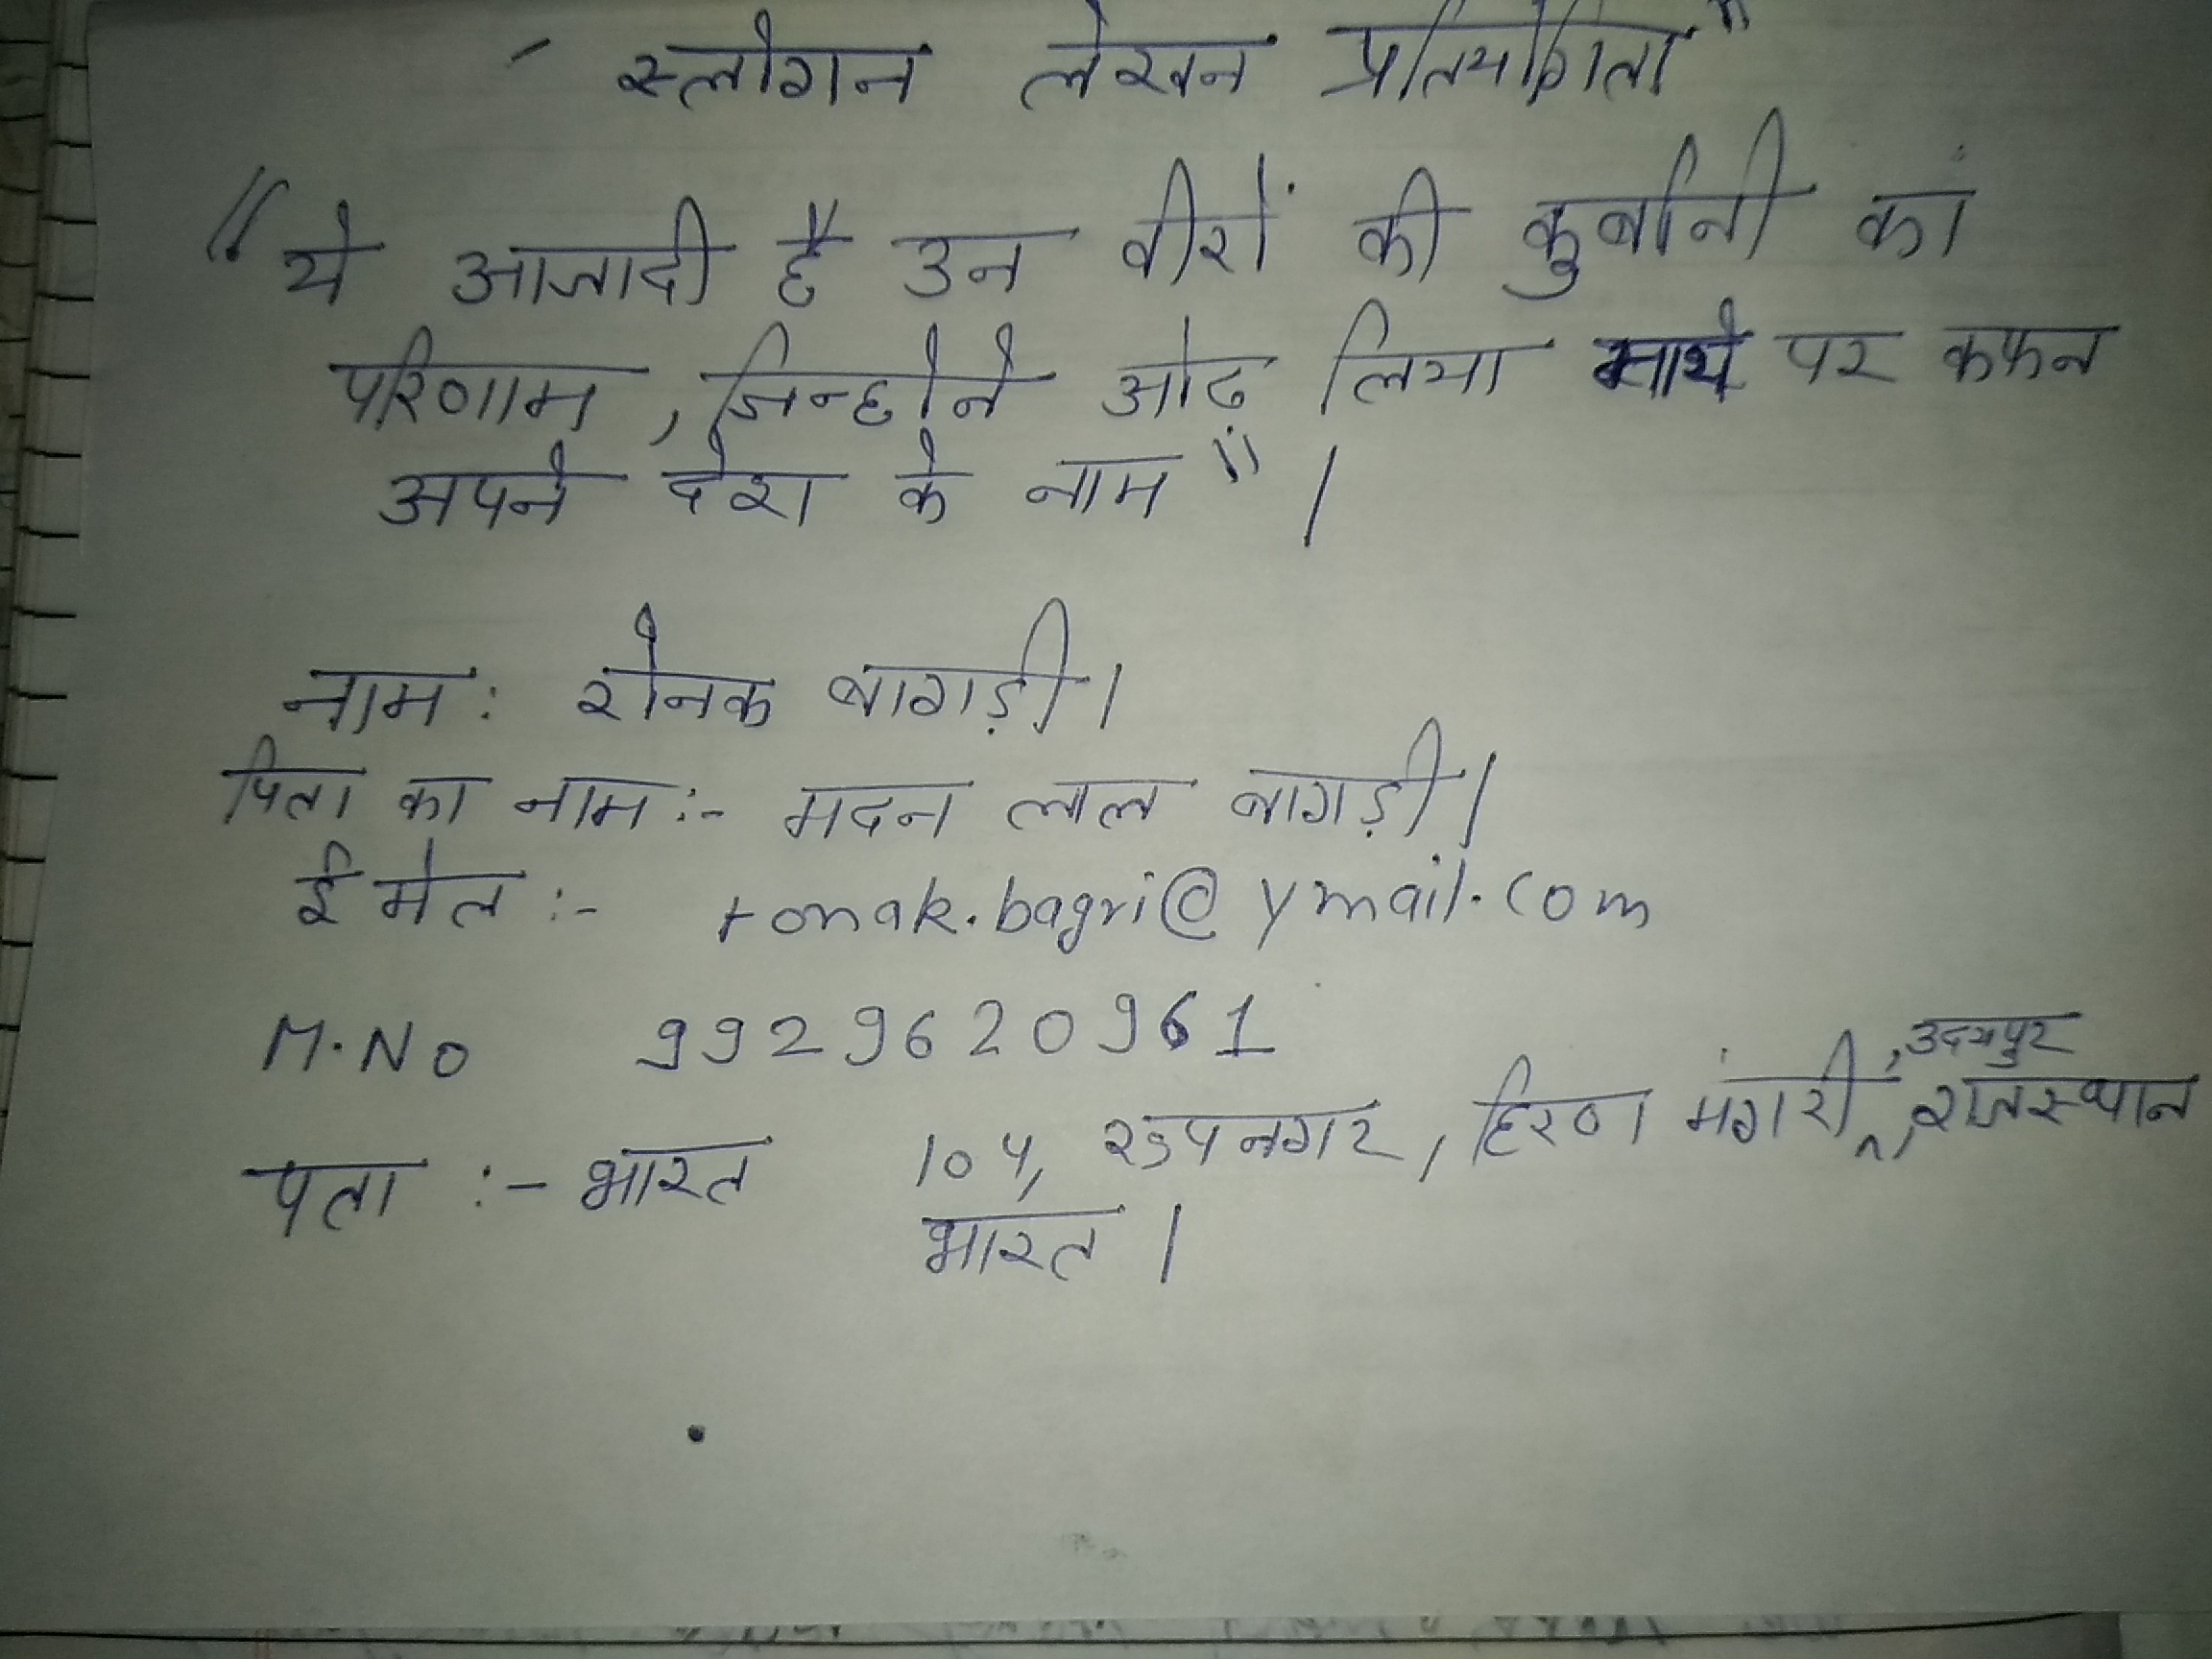 - स्लोगन लेखन प्रतियोगिता"
"ये आजादी है उन वीरों की कुर्बानी का
परिणाम, जिन्होने ओढ़ लिया माथे पर कफन
अपने देश के नाम" |
नाम: रोनक बागड़ी।
पिता का नाम:- मदन लाल बागड़ी।
ई मेल :- ronak.bagri@ymail.com
M.No 9929620961
पता :- भारत 104, रूपनगर, हिरण मंगरी, उदयपुर, राजस्थान
भारत |